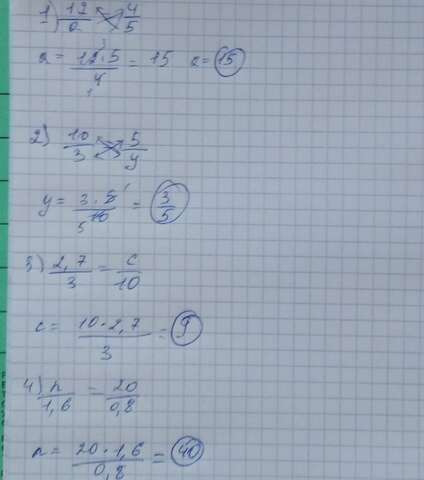 1) 12/a = 4/5
a = 12·5/4 = 15 a = 15
2) 10/3 = 5/y
y = 3·5/10 = 3/5
3) 2,7/3 = c/10
c = 10·2,7/3 = 9
4) n/1,6 = 20/0,8
n = 20·1,6/0,8 = 40